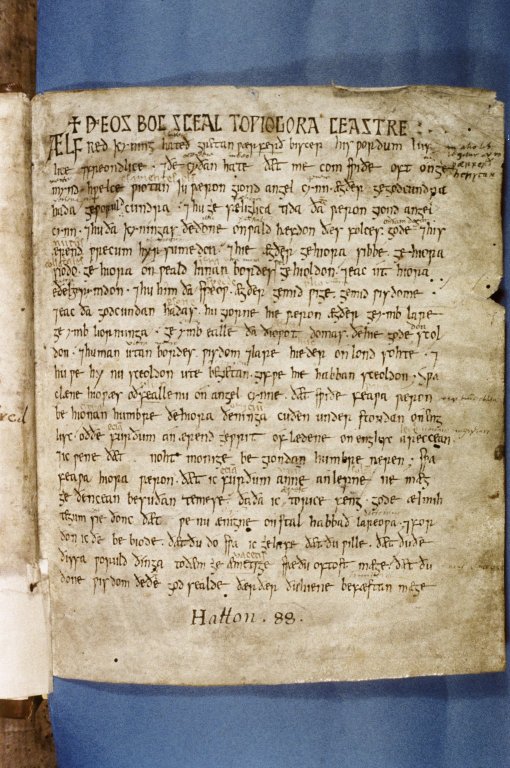 ✝ ÐEOS BOC SCEAL TO ǷIOGORA CEASTRE
ÆLFred kyning hateð gretan ƿærferð biscep his ƿordum luf
lice ⁊ freondlice ⁊ ðe cyðan hate ðæt me com sƿiðe oft on ge
mynd hƿelce ƿiotan iu ƿæron giond angel cynn ægðer ge godcundra
hada ge ƿoruldcundra ⁊ hu gesæliglica tida ða ƿæron giond angel
cynn ⁊ hu ða kyningas ðe ðone onƿald hæfdon ðæs folces gode ⁊ his
ærendƿrecum hyrsumedon ⁊ hie ægðer ge hiora sibbe ge hiora
siodo ge hiora onƿeald innan bordes gehioldon ⁊ eac ut hiora
eðel gerymdon ⁊ hu him ða speoƿ ægðer ge mid ƿige ge mid ƿisdome
⁊ eac ða godcundan hadas hu giorne hie ƿæron ægðer ge ymb lare
ge ymb liornunga ge ymb ealle ða ðioƿot domas ðe hie gode scol
don ⁊ hu man utan bordes ƿisdom ⁊ lare hieder on lond sohte ⁊
hu ƿe hy nu sceoldon ute begietan gif ƿe hie habban sceoldon sƿa
clæne hio ƿæs oðfeallenu on angel cynne ðæt sƿiðe feaƿa ƿæron
be hionan humbre ðe hiora ðeninga cuðen under stondan on eng
lisc oððe furðum an ærend geƿrit of lædene on englisc areccean
⁊ ic ƿene ðæt noht monige be giondan humbre næren sƿa
feaƿa hiora ƿæron ðæt ic furðum anne anlepne ne mæg
ge ðencean be suðan temese ða ða ic to rice feng gode ælmih
tegum sie ðonc ðæt ƿe nu ænigne on stal habbað lareoƿa ⁊ for
ðon ic ðe be biode ðæt ðu do sƿa ic gelefe ðæt ðu ƿille ðæt ðu ðe
ðissa ƿoruld ðinga to ðæm ge æmetige sƿæ ðu oftost mæge ðæt ðu
ðone ƿisdom ðe ðe god sealde ðær ðær ðu hiene befæstan mæge
Hatton . 88 .